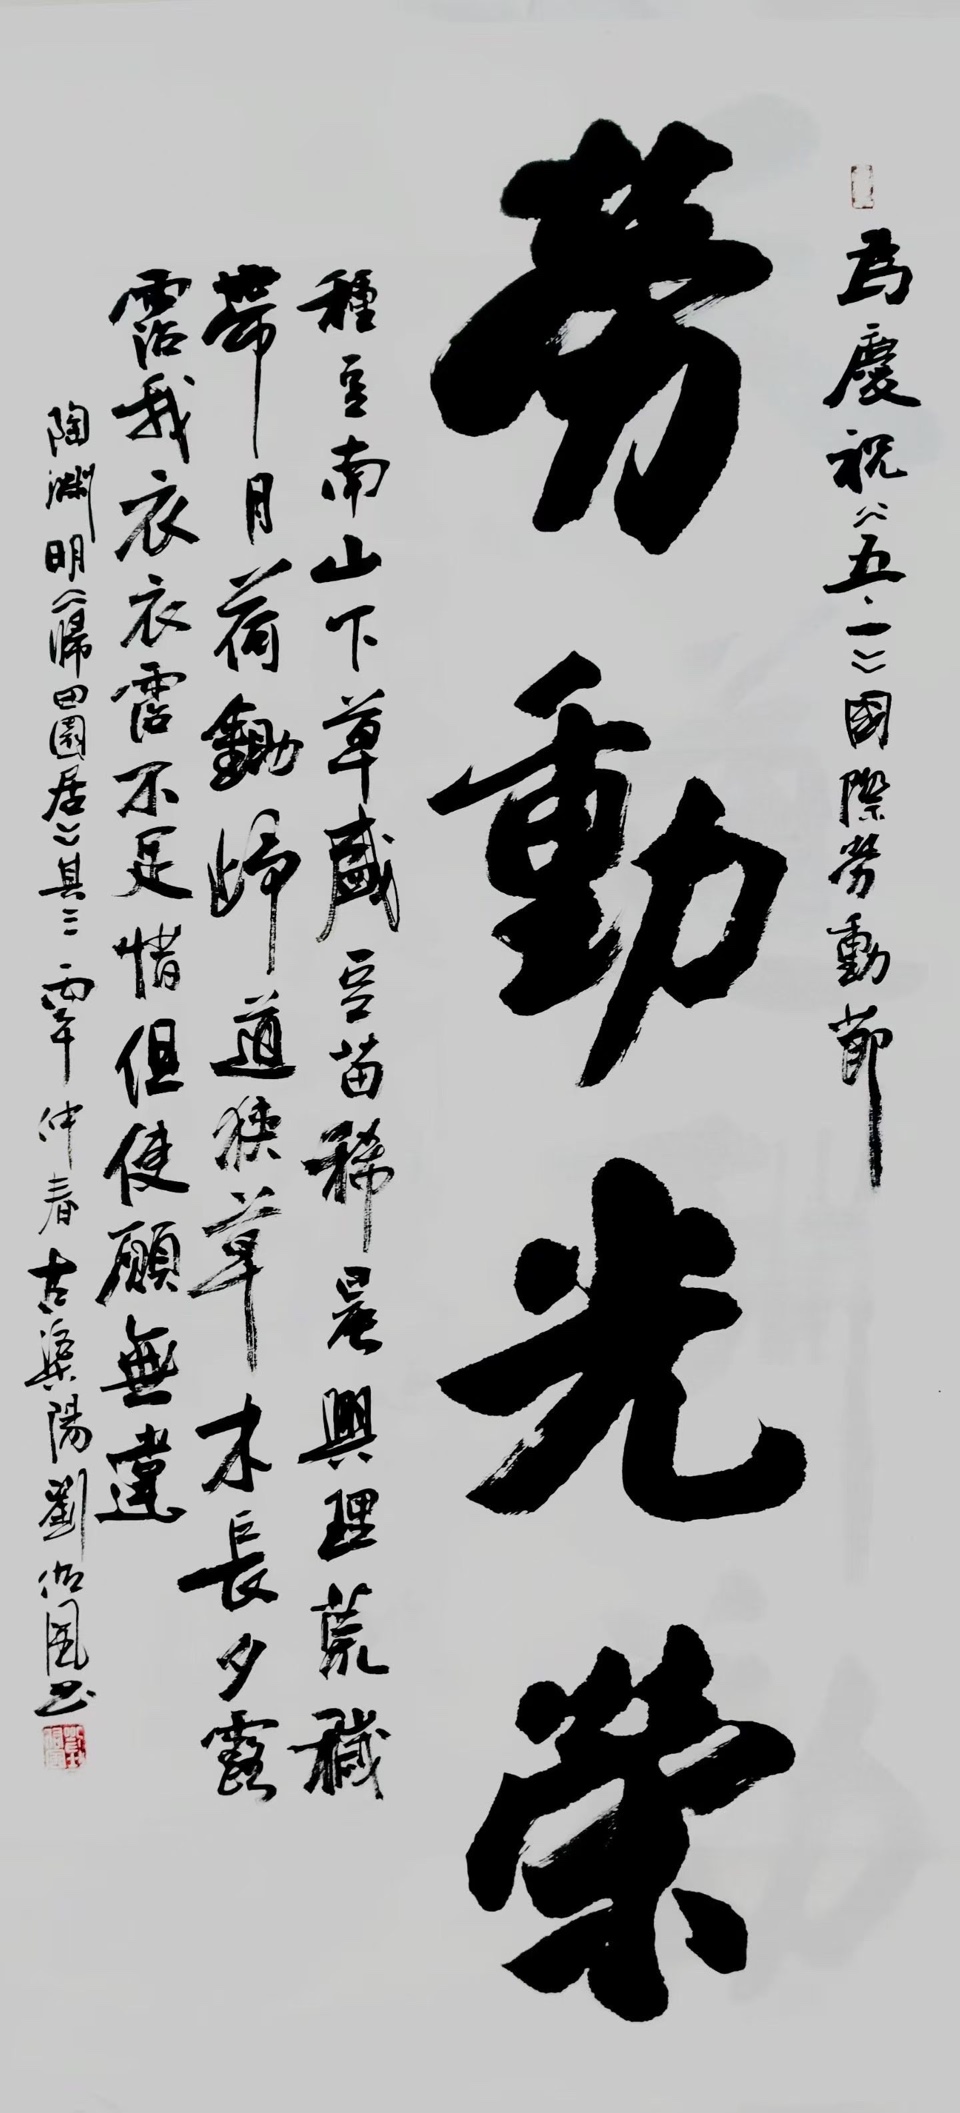 為慶祝《五·一》國際勞動節
勞動光榮
種豆南山下草盛豆苗稀晨興理荒穢
帶月荷鋤歸道狹草木長夕露
霑我衣衣霑不足惜但使願無違
陶淵明《歸田園居》其三 丙午仲春古渠陽劉書